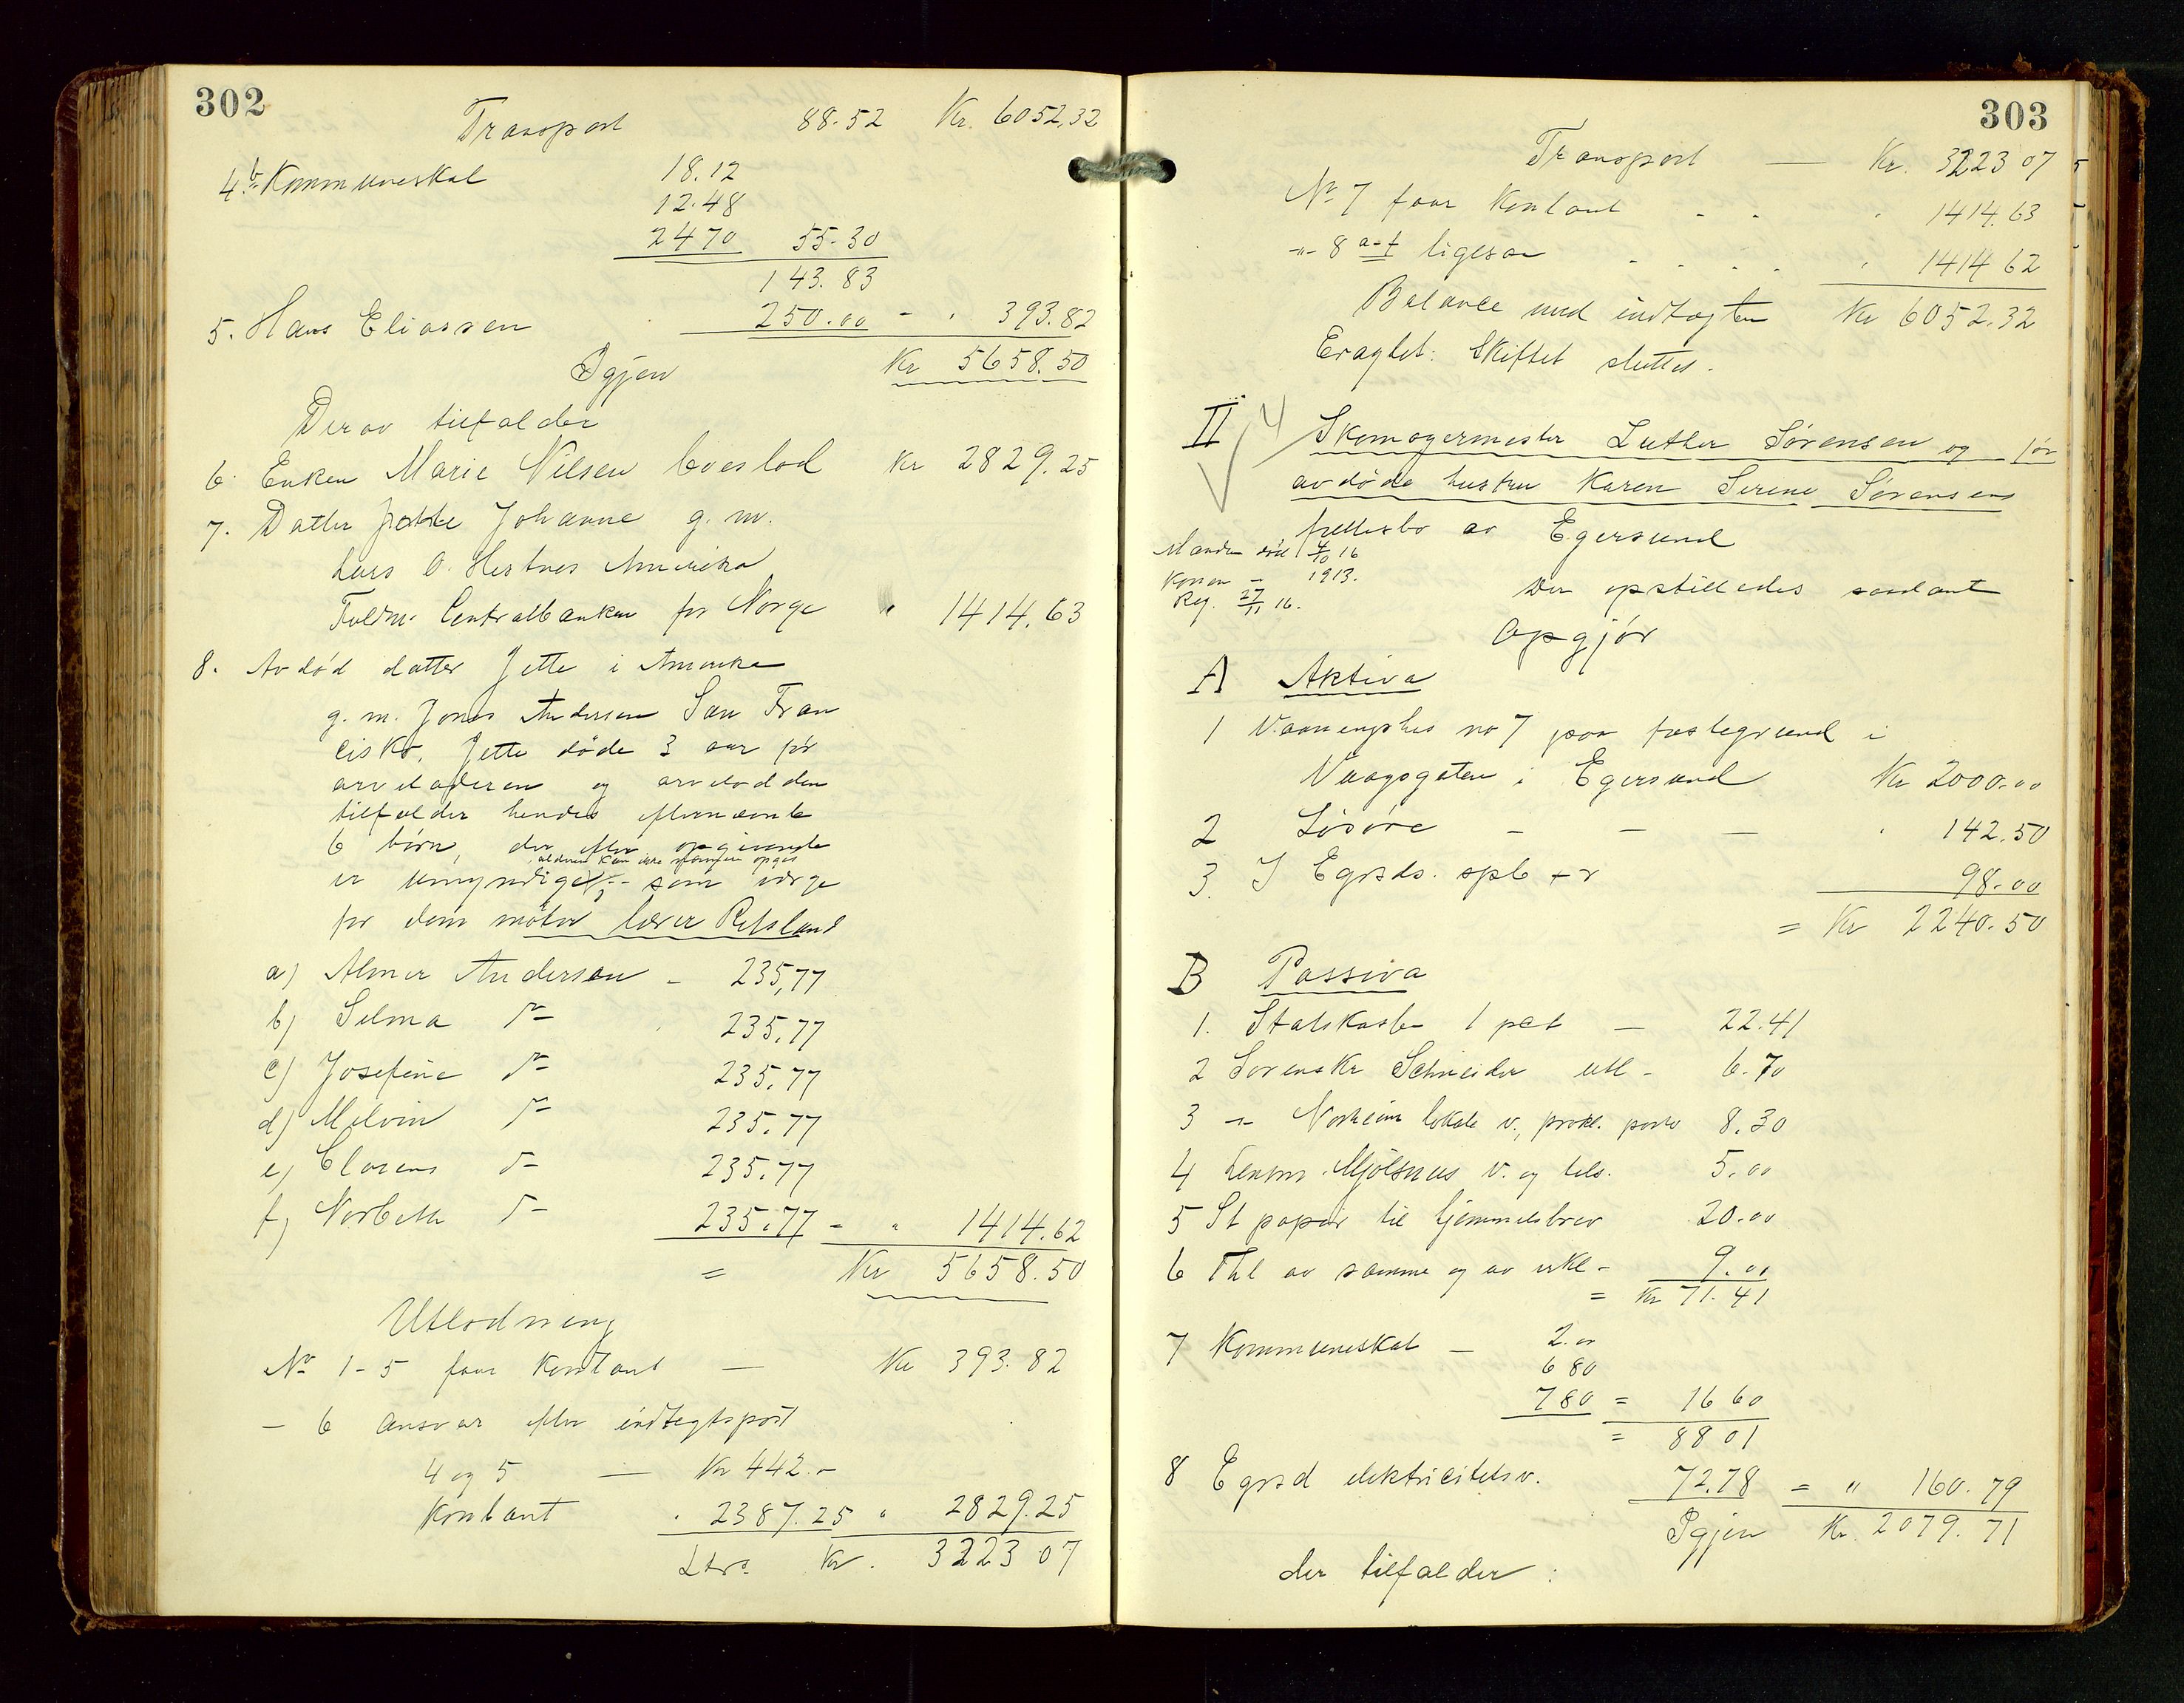 302
Transport 88.52 Kr. 6052,32
4b Kommuneskat 18.12
12.48
24 70 55.30
143.83
5. Hans Eliassen 250.00 - " 393.82
Igjen Kr 5658.50
Derav tilfalder
6. Enken Marie Nilsen boeslod Kr 2829.25
7. Datter Johanne g. m.
Lars O. Hestnes Amerika
Fuldm. Centralbanken for Norge " 1414.63
8. Avdød datter Jette i Amerika
g. m. Jonas Andersen San Fran
cisko. Jette døde 3 aar før
arveladeren og arvelodden
tilfalder hendes efternævnte
6 børn, der efter opgivende
alderen kan ikke nærmere opgis
er umyndige, - som værge
for dem møter lærer Refsland
a) Almer Andersen - 235,77
b) Selma do 235.77
c) Josefine do 235.77
d) Melvin do 235.77
e) Clarens do 235.77
f) Norbeth do 235.77 - " 1414.62
= Kr 5658.50
Utlodning
No 1-5 faar kontant — Kr 393.82
- 6 ansvar efter indtægtspost
4 og 5 — Kr 442.-
Kontant " 2387.25 " 2829.25
Ltrs. Kr. 3223 07
303
Transport — Kr. 3223 07
No 7 faar kontant - - " 1414.63
-"- 8 a-f ligesaa - - - - " 1414 62
Balance med indtægten Kr 6052.32
Eragtet: Skiftet sluttes.
II 4 Skomagermester Luther Sørensen og før
avdøde hustru Karen Serine Sørensens
fællesbo av Egersund
Manden død 4/10 16
Konen - 1913.
Reg. 27/11 16.
Der opstilledes saadant
Opgjør
A Aktiva
1 Vaaningshus no 7 paa festegrund i
Vaagsgaten i Egersund Kr 2000.00
2 Løsøre - - - " 142.50
3. I Egrsds. spb + r 98.00
= Kr 2240.50
B Passiva
1. Statskassen 1 pct — 22.41
2 Sorenskr Schneider utl - 6.70
3 -"- Norheim lokale v., prokl. porto 8.30
4 Lensm. Mjølsnes v. og tels. 5.00
5 St papir til hjemmelsbrev 20.00
6 Thl av samme og av erkl - 9.00
= Kr 71.41
7 Kommuneskat — 2.00
6 80
7 80 = 16 60
= 88 01
8 Egrsd elektricitetsv. 72.78 = " 160.79
Igjen Kr. 2079.71
der tilfalder: